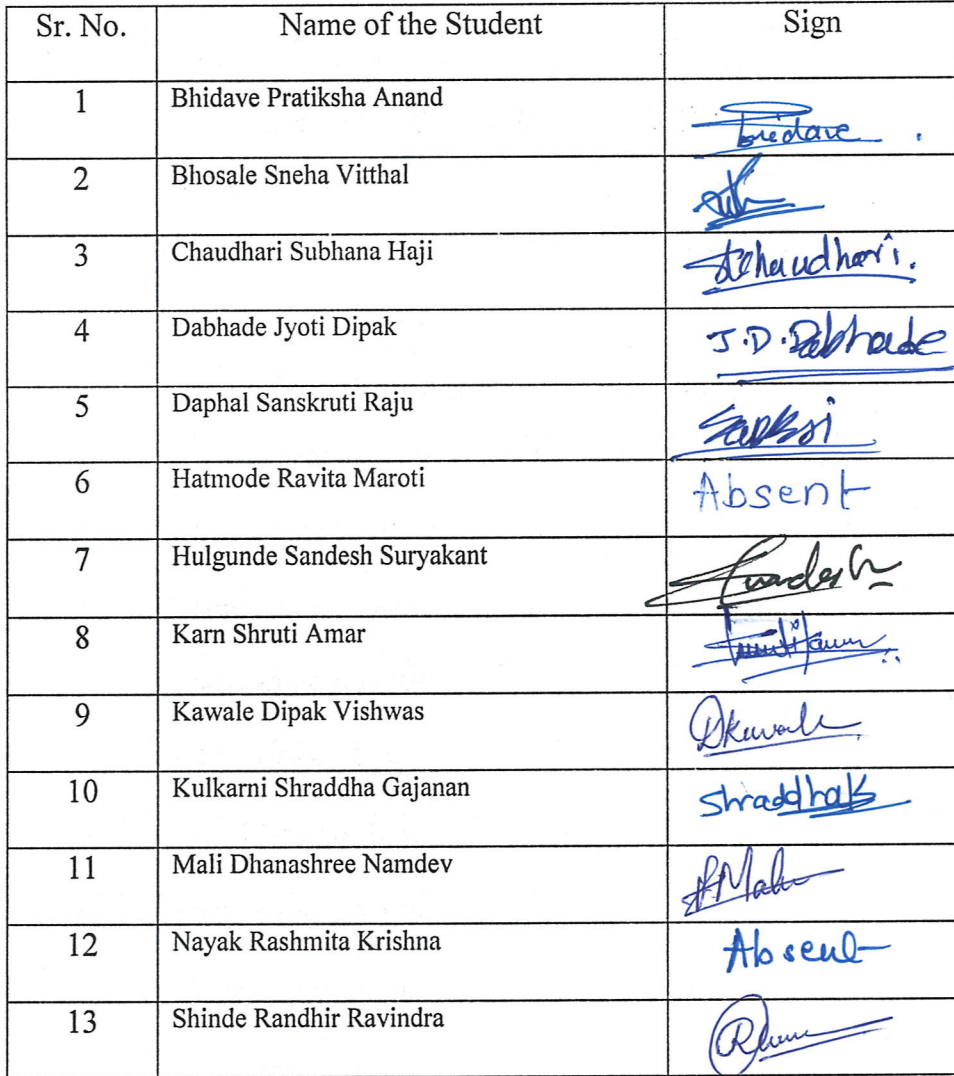 Sr. No. Name of the Student Sign
1 Bhidave Pratiksha Anand Bhidave
2 Bhosale Sneha Vitthal
3 Chaudhari Subhana Haji SChaudhari.
4 Dabhade Jyoti Dipak J.D.Dabhade
5 Daphal Sanskruti Raju
6 Hatmode Ravita Maroti Absent
7 Hulgunde Sandesh Suryakant Sandesh
8 Karn Shruti Amar
9 Kawale Dipak Vishwas DKawale
10 Kulkarni Shraddha Gajanan ShraddhaK
11 Mali Dhanashree Namdev
12 Nayak Rashmita Krishna Absent
13 Shinde Randhir Ravindra